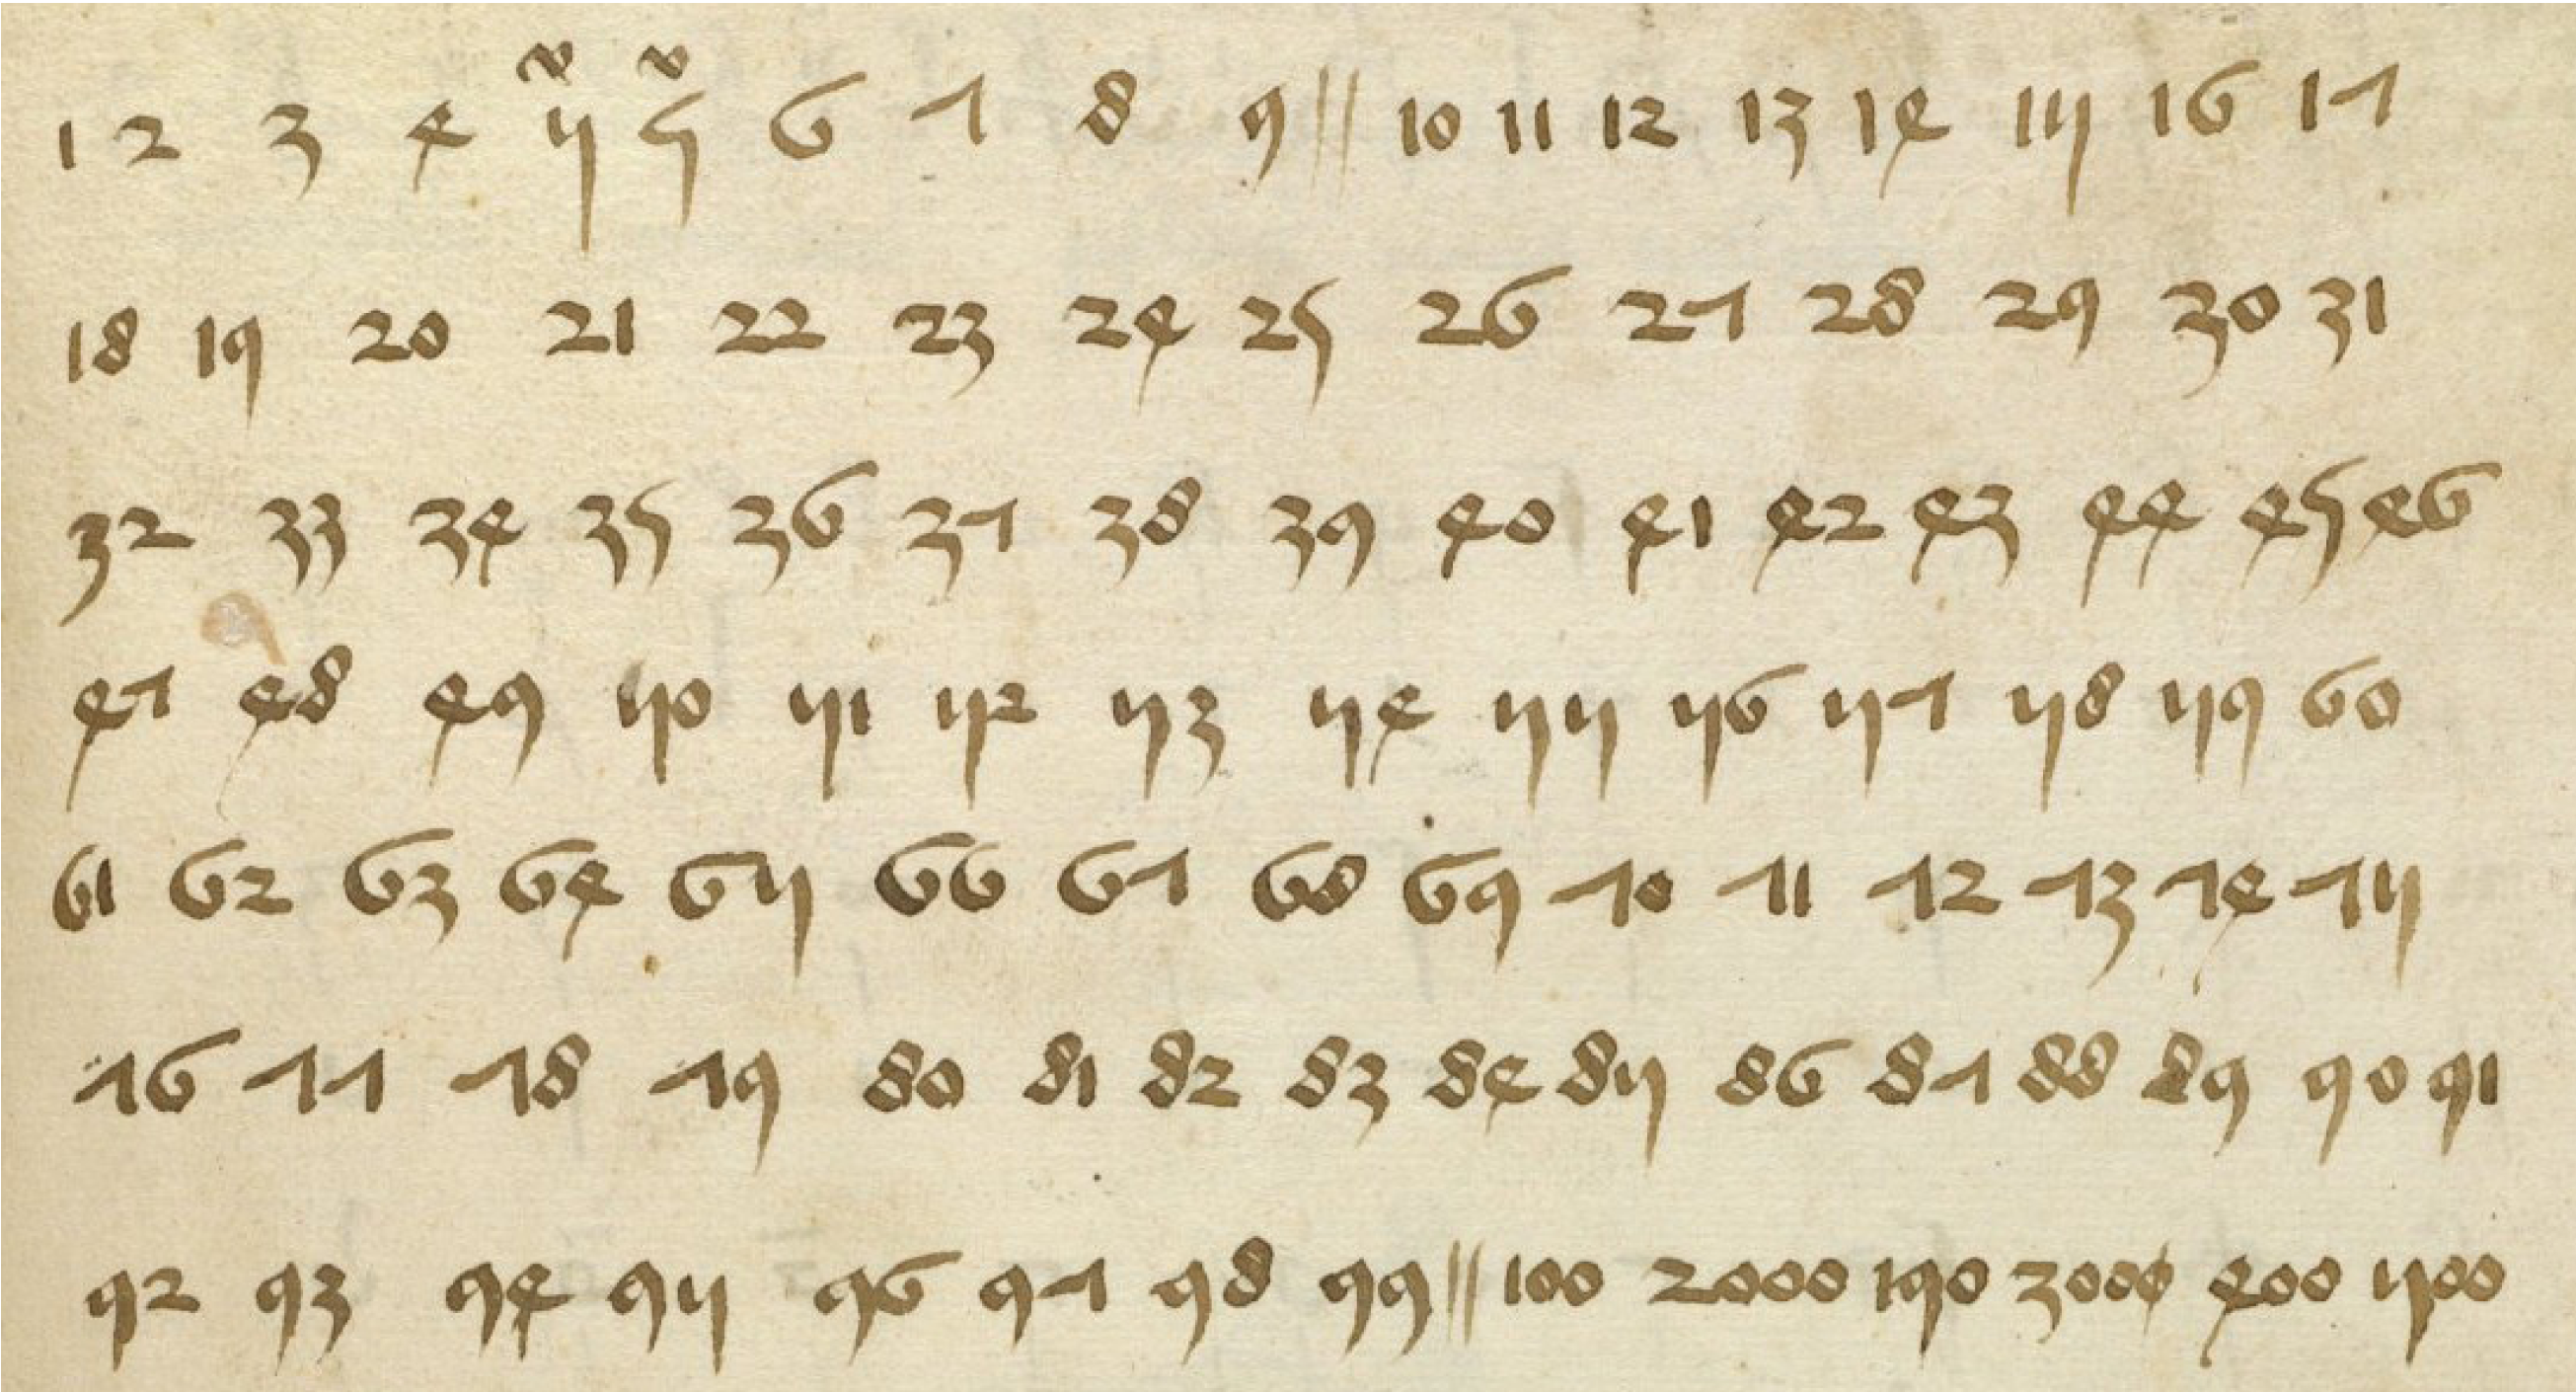 1 2 3 4 5 5 6 7 8 9 || 10 11 12 13 14 15 16 17
18 19 20 21 22 23 24 25 26 27 28 29 30 31
32 33 34 35 36 37 38 39 40 41 42 43 44 45 46
47 48 49 50 51 52 53 54 55 56 57 58 59 60
61 62 63 64 65 66 67 68 69 70 71 72 73 74 75
76 77 78 79 80 81 82 83 84 85 86 87 88 89 90 91
92 93 94 95 96 97 98 99 || 100 2000 190 3000 400 500